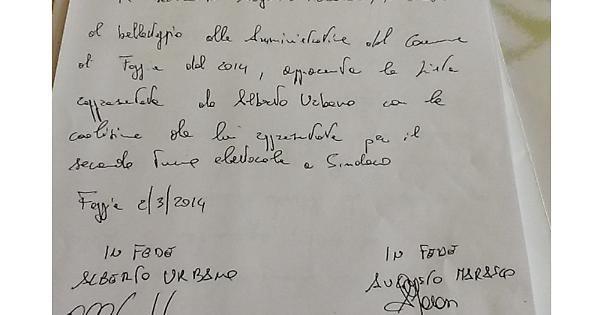 al ballottaggio alle Amministrative del Comune
di Foggia del 2014, appoggerà la lista
rappresentata da Alberto Urbano con la
coalizione da lui rappresentata per il
secondo turno elettorale a Sindaco
Foggia 2/3/2014
IN FEDE IN FEDE
ALBERTO URBANO AUGUSTO MARASCO